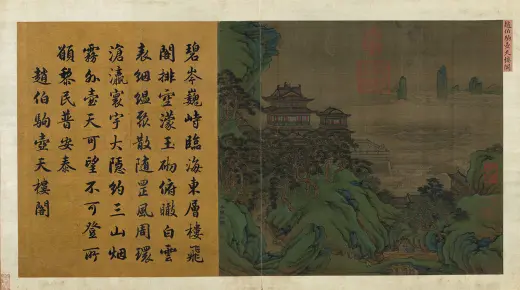 趙伯駒壺天樓閣
碧岑巍峙臨海東層樓飛
閣排空濛玉砌俯瞰白雲
表絪縕聚散隨罡風周環
滄瀛寰宇大隱約三山烟
霧外壺天可望不可登所
願黎民普安泰
趙伯駒壺天樓閣